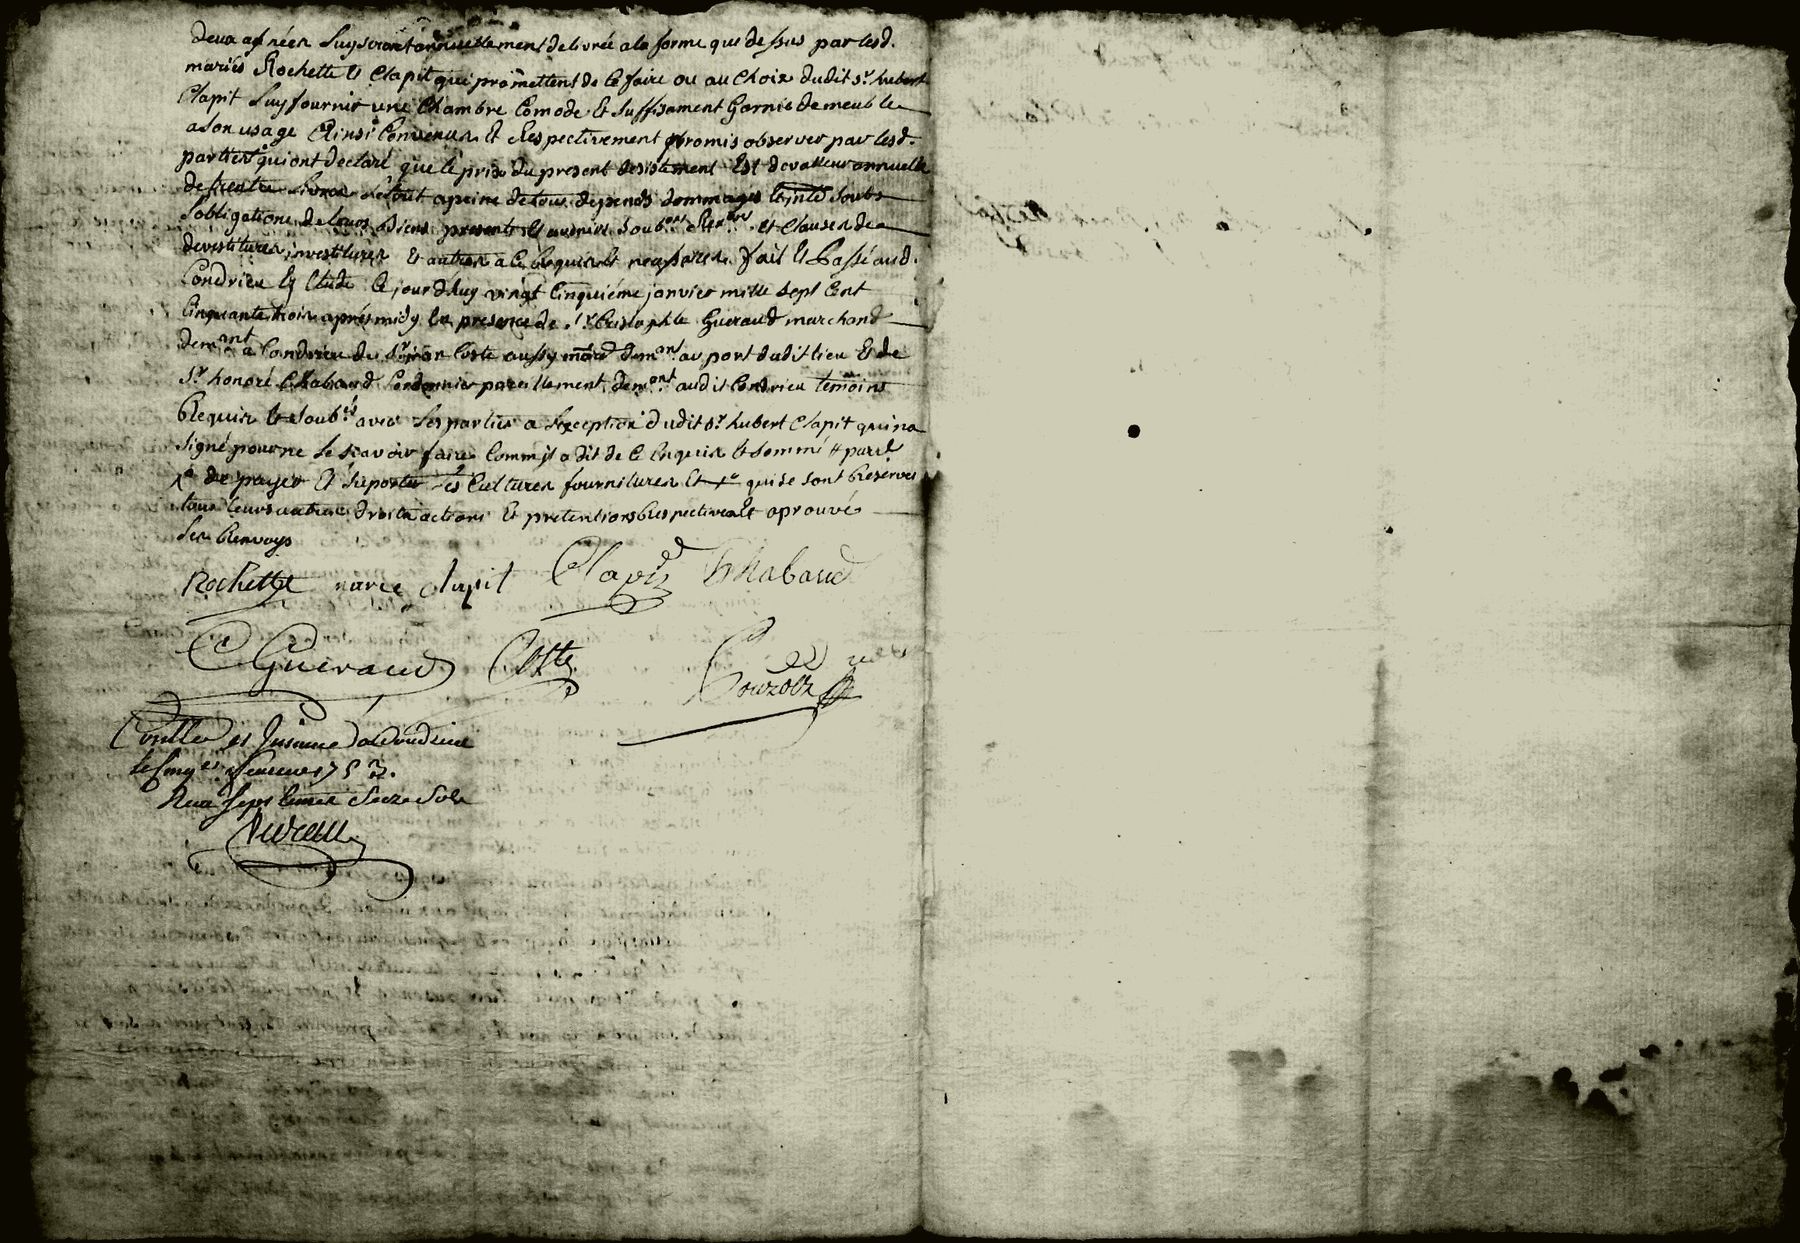 deux années luy seront annuellement delivrée a la forme que dessus par lesd.
mariés Rochette et Clapit qui promettent de ce faire ou au choix dudit sr hubert
Clapit luy fournir une Chambre Comode et suffisament Garnie de meuble
a son usage Ainsi Convenus et Respectivement promis observer par lesd.
parties qui ont declaré que le prix du present desistement Est de valleur annuelle
de trente livres Le tout a peine de tous depends dommages
obligations de leurs biens presents et avenirs soub.ons Ren.ons et Clauses de
devestitures investitures Et autres a ce Requises et necessaires fait et Passé aud.
Condrieu Le jourd'huy vingt Cinquiéme janvier mille sept Cent
Cinquante trois aprés midy En presence de sr Cristophle Gueraud marchand
demant a Condrieu du sr jean Coste aussy mard demant au port dudit lieu Et de
Sr honoré Chabaud Cordonnier pareillement demant audit Condrieu temoins
Requis et soub.és avec les parties a l'exception dudit sr hubert Clapit qui n'a
signé pour ne le scavoir faire Comm'il a dit de ce Enquis et sommé
de payer Et suporter les Cultures fournitures Et qui se sont Reserves
tous leurs autres droits actions Et pretentions Respectives Et aprouvé
les Renvoys
Rochette marie clapit Clapit Chabaud
C Gueraud Coste
Conttlé et Insinué a Condrieu
le Cinqe fevrier 1753.
Reçu sept livres seize sols